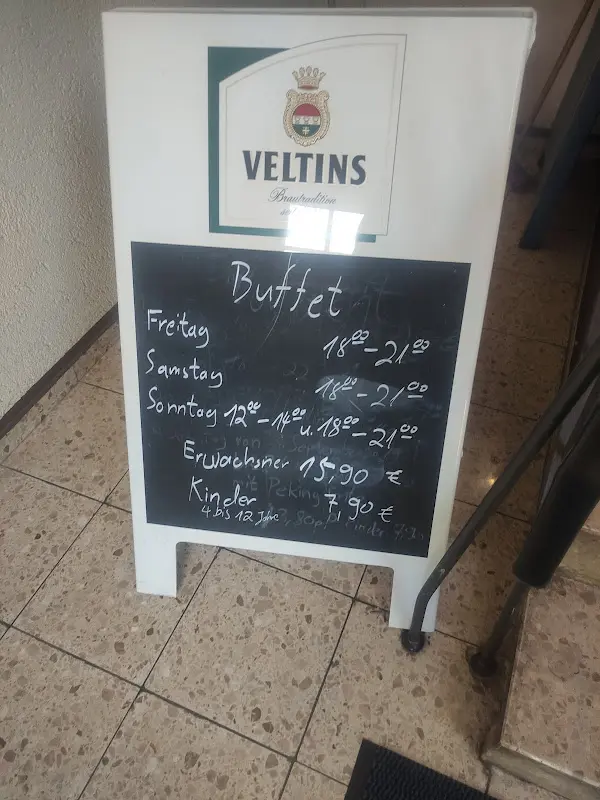 VELTINS
Brautradition
Buffet
Freitag 18⁰⁰-21⁰⁰
Samstag 18⁰⁰-21⁰⁰
Sonntag 12⁰⁰-14⁰⁰ u. 18⁰⁰-21⁰⁰
Erwachsner 15,90 €
Kinder 7,90 €
4 bis 12 Jahre